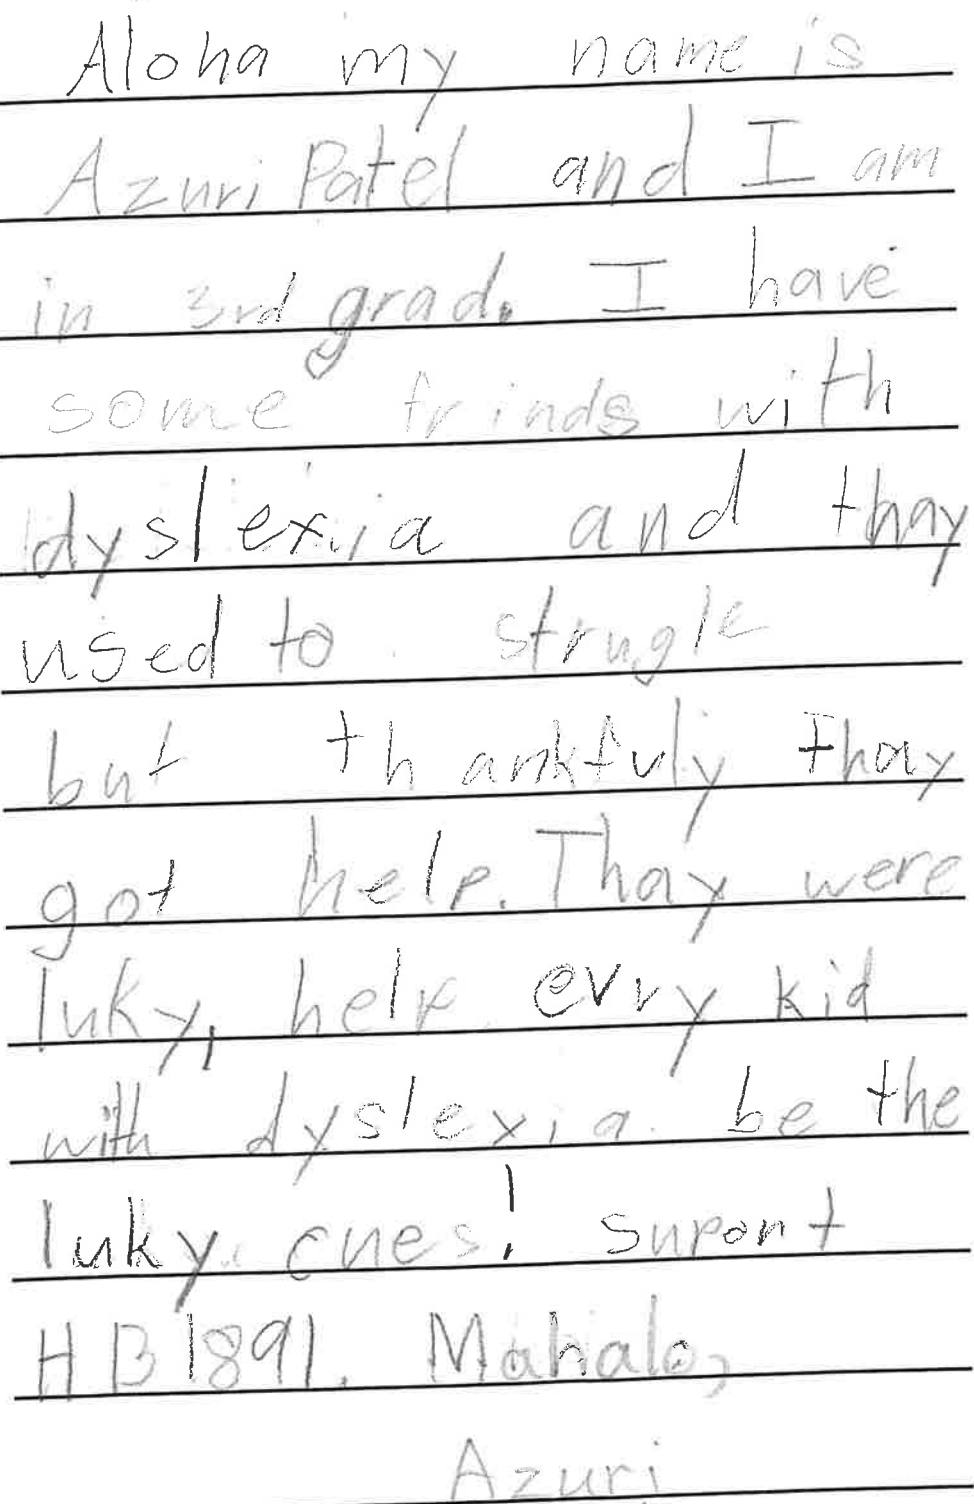 Aloha my name is
Azuri Patel and I am
in 3rd grad. I have
some frinds with
dyslexia and thay
used to strugle
but thankfuly thay
got help. Thay were
luky, help evry kid
with dyslexia be the
luky ones! suport
HB 1891. Mahalo,
Azuri